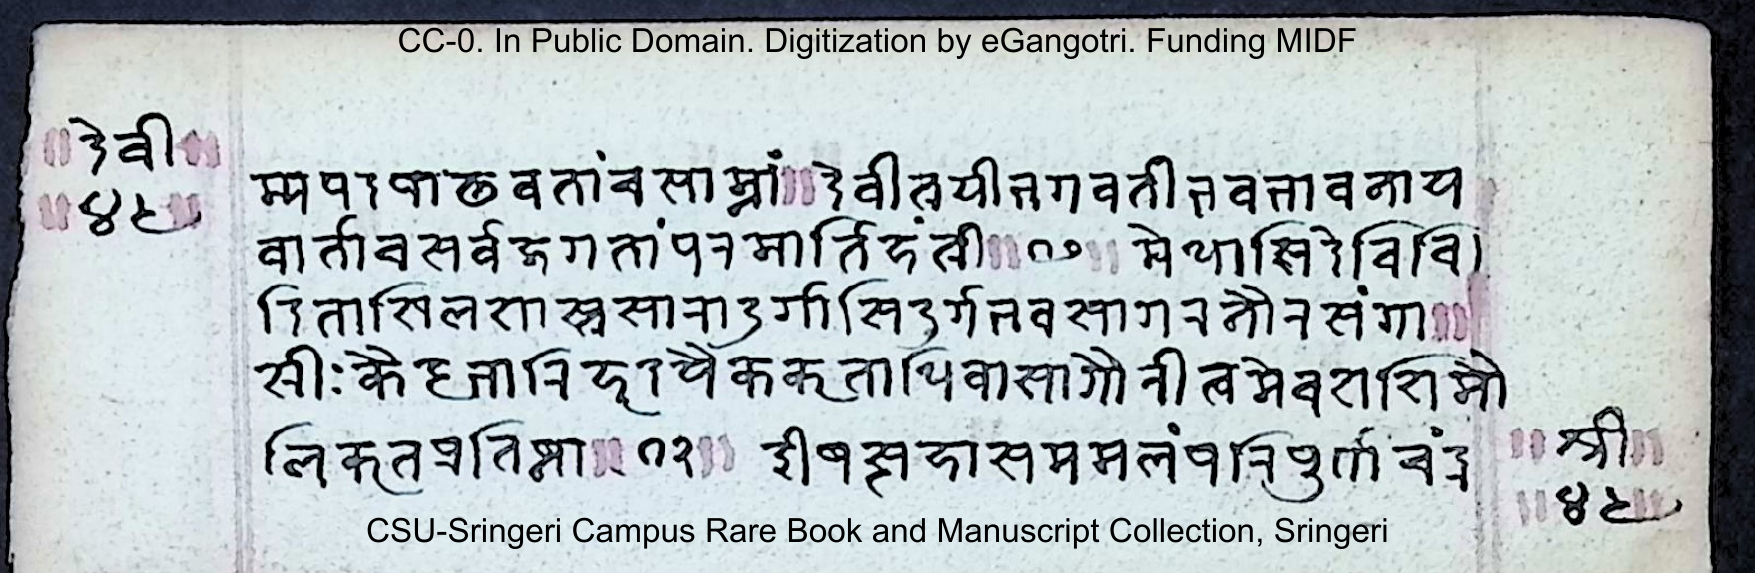 CC-0. In Public Domain. Digitization by eGangotri. Funding MIDF
॥देवी॥
॥४९॥
म्यपदपाठवतांचसाम्नां॥देवीत्रयीभगवतीभवभावनाय
वार्ताचसर्वजगतांपरमार्तिहंत्री॥१०॥मेधासिदेविवि
दिताखिलशास्त्रसारादुर्गासिदुर्गभवसागरनौरसंगा॥
श्रीःकैटभारिहृदयैककृताधिवासागौरीत्वमेवशशिमौ
लिकृतप्रतिष्ठा॥११॥ईषत्सहासममलंपरिपूर्णचंद्र
॥श्री॥
॥४९॥
CSU-Sringeri Campus Rare Book and Manuscript Collection, Sringeri